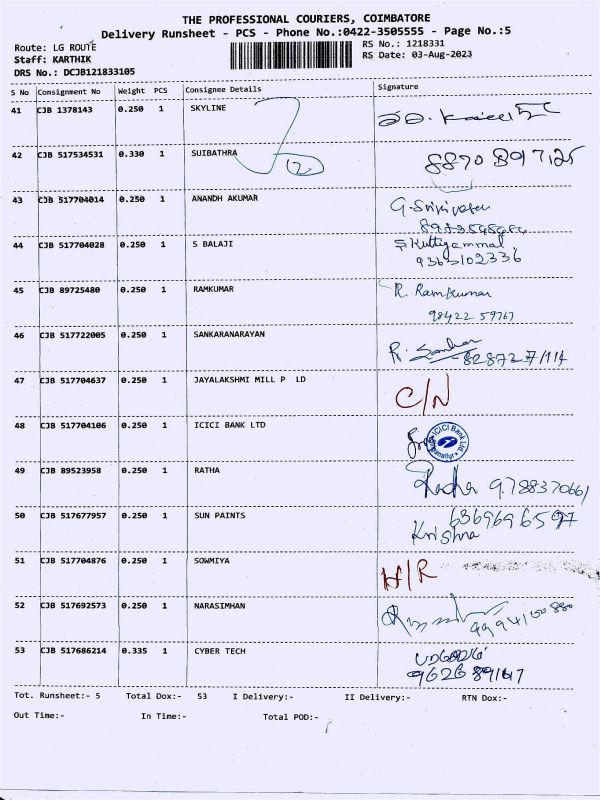 THE PROFESSIONAL COURIERS, COIMBATORE
Delivery Runsheet - PCS - Phone No.:0422-3505555 - Page No.:5
Route: LG ROUTE RS No.: 1218331
Staff: KARTHIK RS Date: 03-Aug-2023
DRS No.: DCJB121833105
S No Consignment No Weight PCS Consignee Details Signature
41 CJB 1378143 0.250 1 SKYLINE
42 CJB 517534531 0.330 1 SUIBATHRA 2
43 CJB 517704014 0.250 1 ANANDH AKUMAR G. Srinivasan
44 CJB 517704028 0.250 1 S BALAJI S Kuttiyammal
45 CJB 89725480 0.250 1 RAMKUMAR R. Ramkumar
98422 59767
46 CJB 517722005 0.250 1 SANKARANARAYAN
47 CJB 517704637 0.250 1 JAYALAKSHMI MILL P LD C/N
48 CJB 517704106 0.250 1 ICICI BANK LTD ICICI Bank Ltd.
49 CJB 89523958 0.250 1 RATHA Radha 9788370661
50 CJB 517677957 0.250 1 SUN PAINTS 6369696597
Krishna
51 CJB 517704876 0.250 1 SOWMIYA H/R
52 CJB 517692573 0.250 1 NARASIMHAN
53 CJB 517686214 0.335 1 CYBER TECH
Tot. Runsheet:- 5 Total Dox:- 53 I Delivery:- II Delivery:- RTN Dox:-
Out Time:- In Time:- Total POD:-